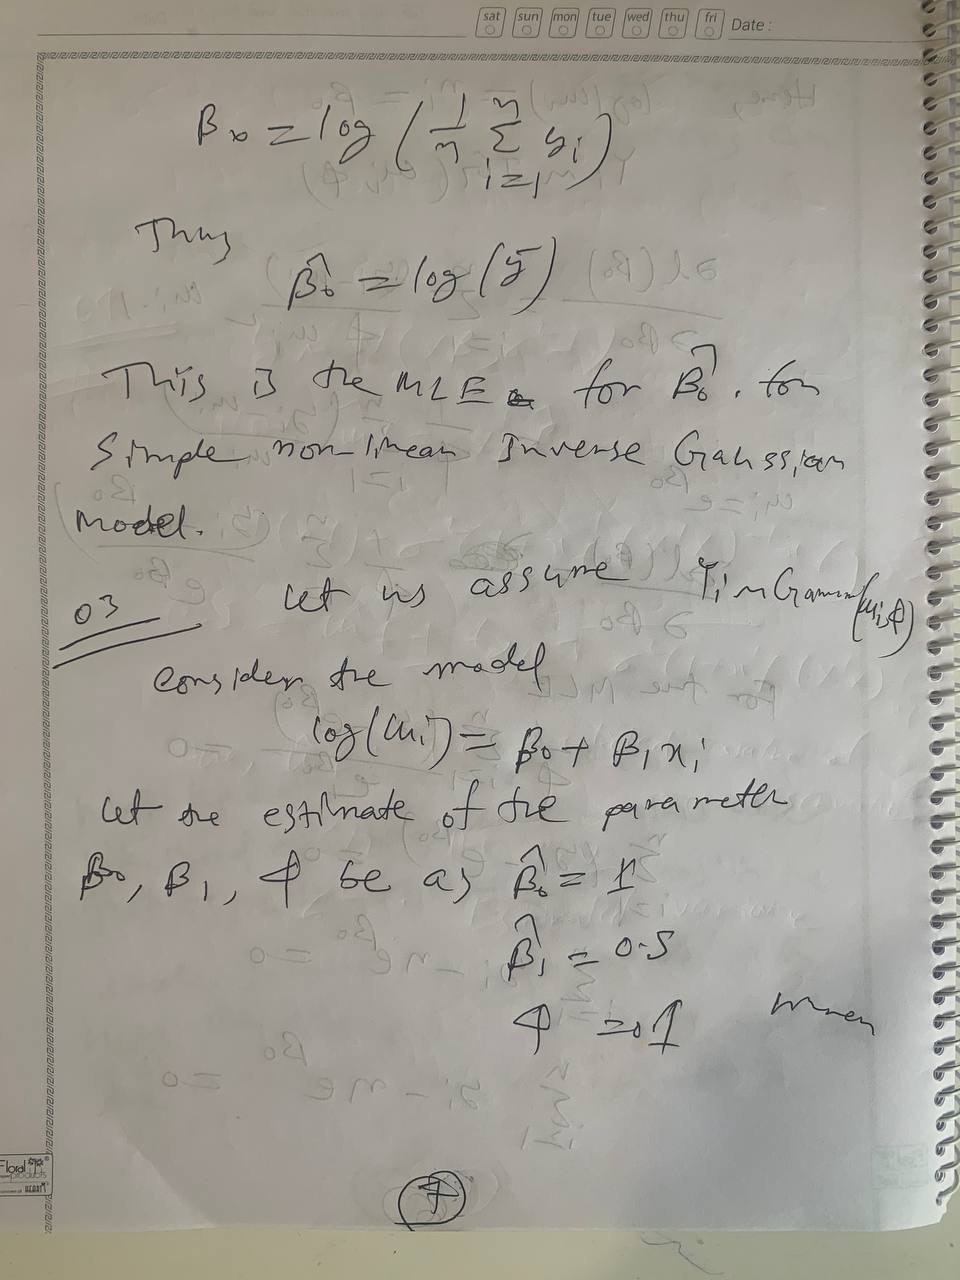 sat sun mon tue wed thu fri Date :
β₀ = log ( 1/n Σ_{i=1}^{n} yᵢ )
Thus
β̂₀ = log (ȳ)
This is the MLE for β̂₀. for
simple non-linear Inverse Gaussian
Model.
03 Let us assume Yi ~ Gamma(μi, φ)
consider the model
log(μi) = β₀ + β₁xi
Let the estimate of the parameter
β₀, β₁, φ be as β̂₀ = 1
β̂₁ = 0.5
φ = 0.1 when
Floral
products
HEART
4